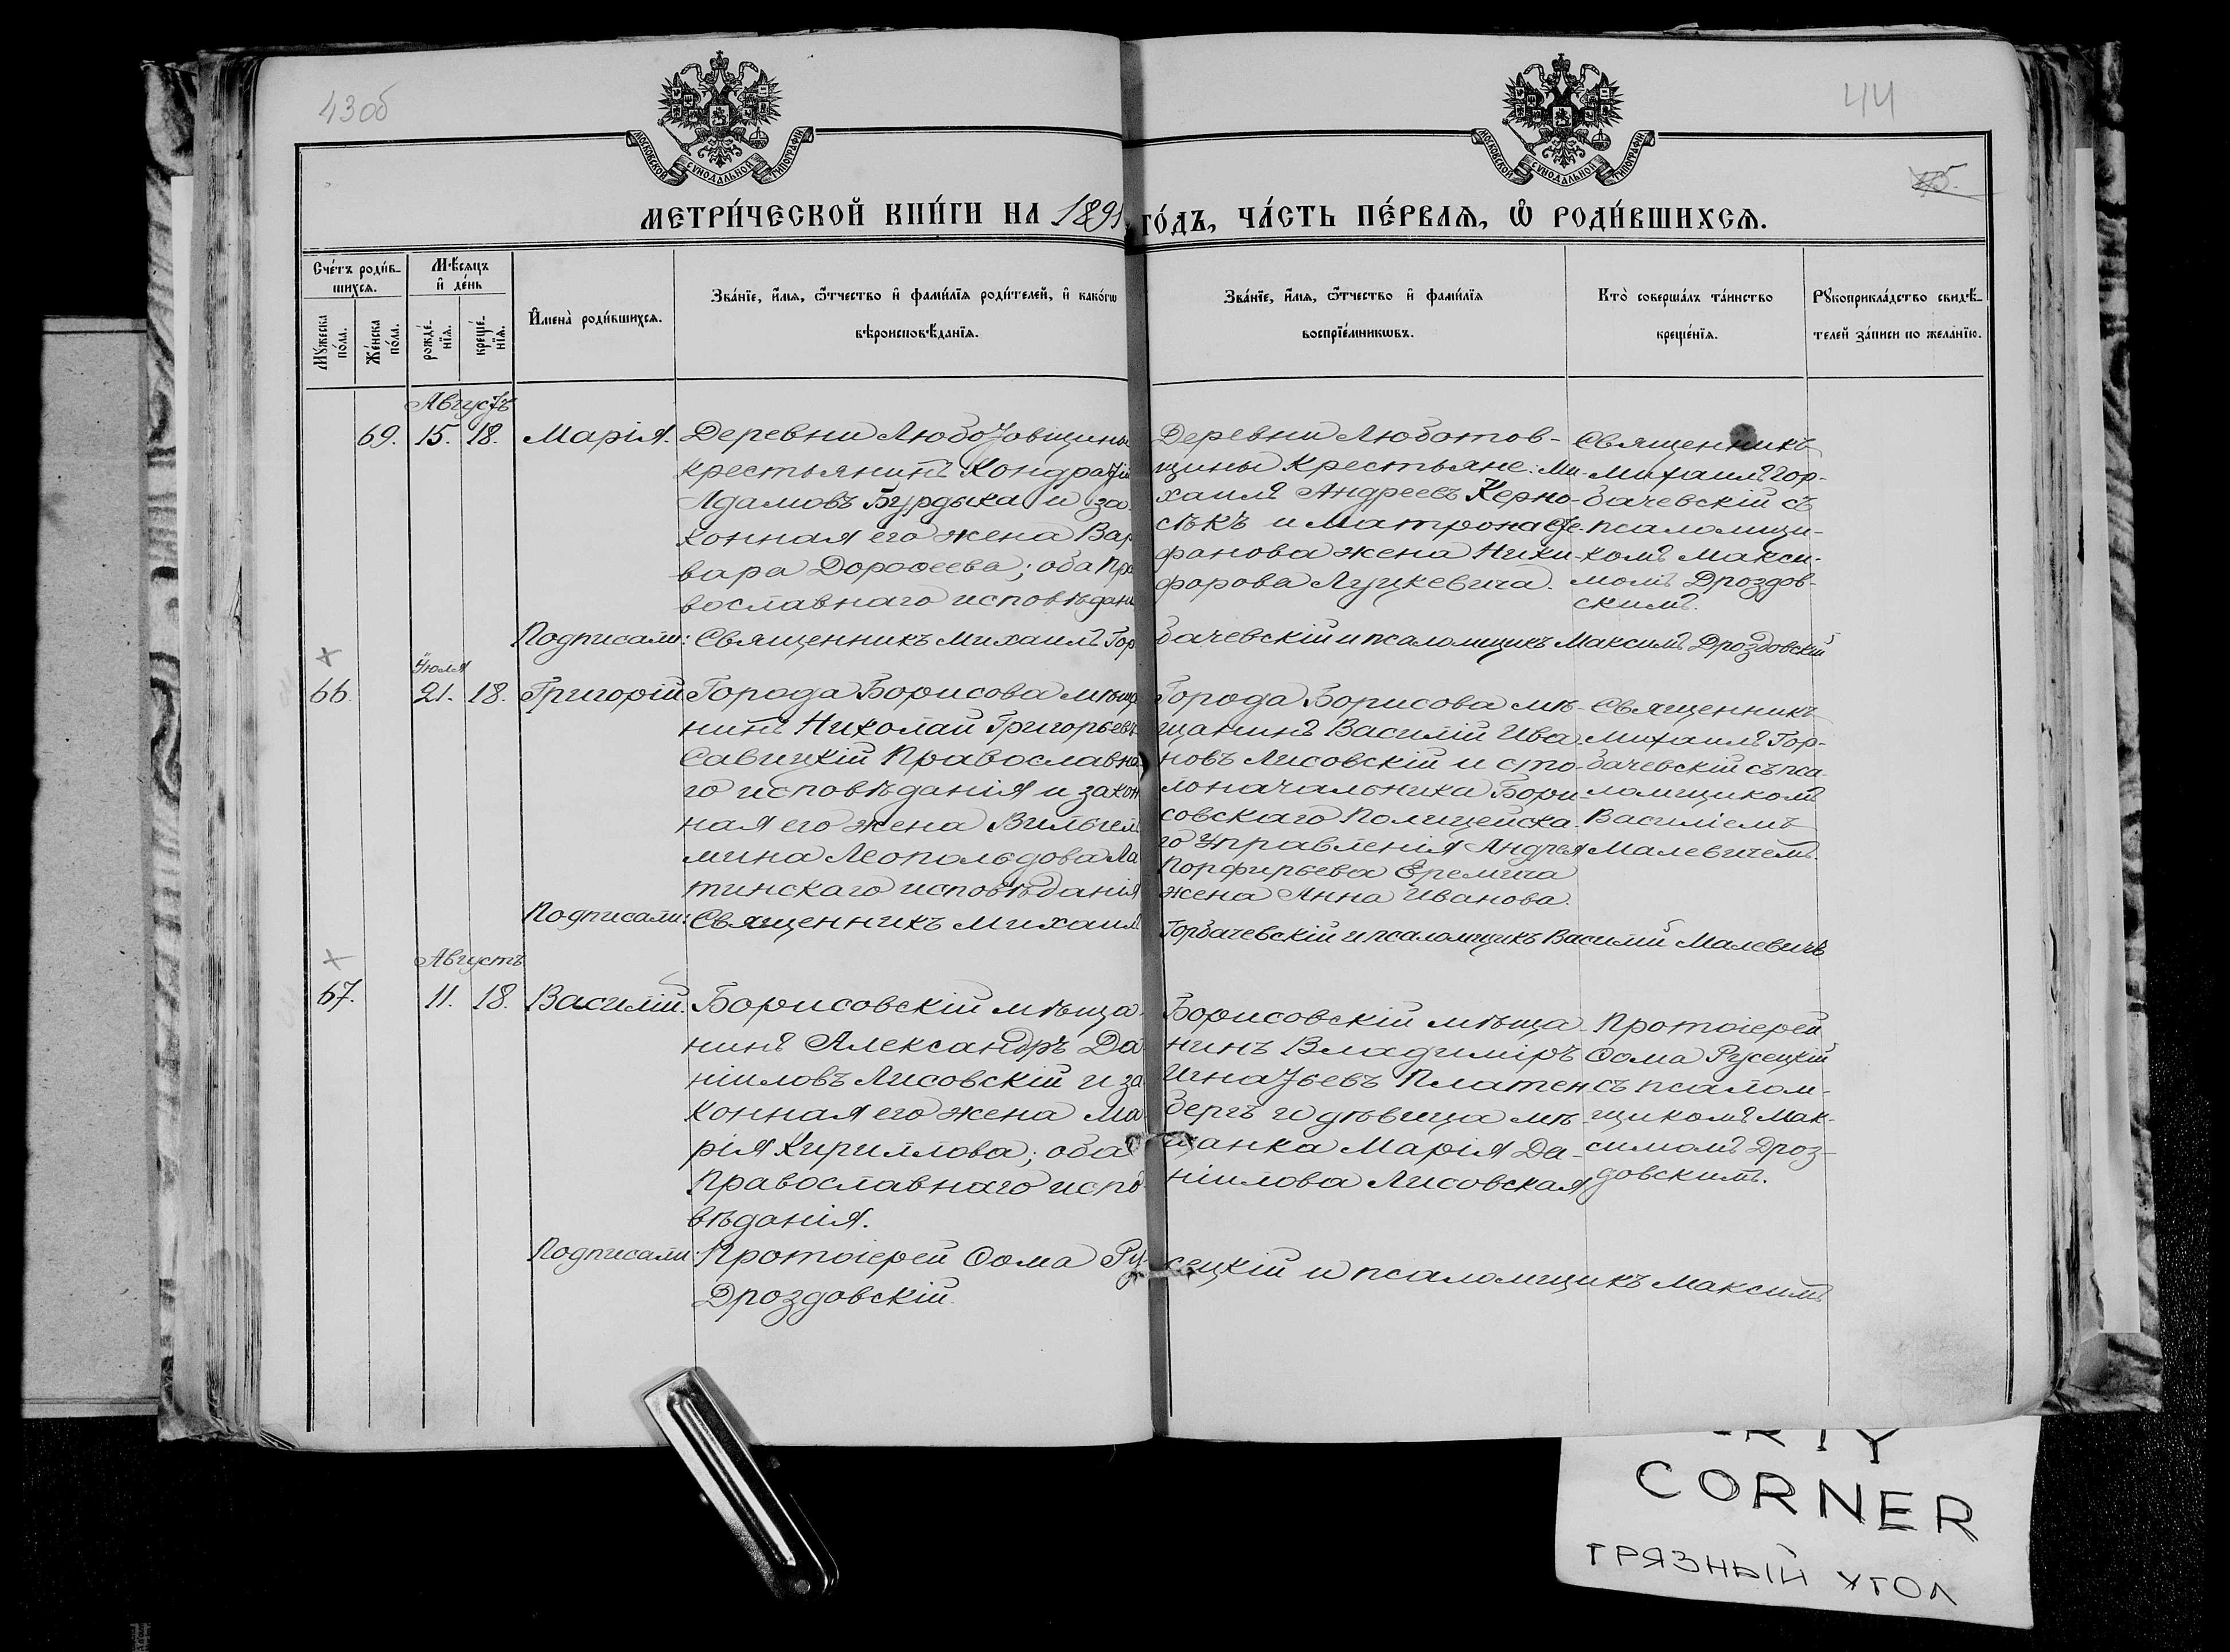 43об
44
45.
МОСКОВСКОЙ СѴНОДАЛЬНОЙ ТИПОГРАФІИ
МОСКОВСКОЙ СѴНОДАЛЬНОЙ ТИПОГРАФІИ
МЕТРИ́ЧЕСКОЙ КНИ́ГИ НА 1891 ГО́ДЪ, ЧА́СТЬ ПЕ́РВАѦ, Ѡ РОДИ́ВШИХСѦ.
Сче́тъ роди́в-
шихсѧ.
Мꙋ́жеска
по́ла.
Же́нска
по́ла.
Мѣ́сѧцъ
и҆ де́нь
рожде́-
нїѧ.
креще́-
нїѧ.
И҆мена̀ роди́вшихсѧ.
Зва́нїе, и҆́мѧ, ѻ҆́тчество и҆ фами́лїѧ роди́телей, и҆ како́гѡ
вѣроисповѣ́данїѧ.
Зва́нїе, и҆́мѧ, ѻ҆́тчество и҆ фами́лїѧ
воспрїе́мникѡвъ.
Кто̀ соверша́лъ та́инство
креще́нїѧ.
Рꙋкоприкла́дство свидѣ́-
телей за́писи по жела́нїю.
Августъ
69. 15. 18. Марія.
Деревни Люботовщины
крестьянинъ Кондратій
Адамовъ Бурдыка и за-
конная его жена Вар
вара Дорофеева; оба Пра
вославнаго исповѣдані
Деревни Люботов-
щины крестьяне: Ми-
хаилъ Андреевъ Керно-
сѣкъ и Матрона Сте-
фанова жена Ники-
форова Луцкевича.
Священникъ
Михаилъ Гор-
бачевскій съ
псаломщи-
комъ Макси-
момъ Дроздов-
скимъ.
Подписали: Священникъ Михаилъ Горбачевскій и псаломщикъ Максимъ Дроздовскій
Іюля
66. 21. 18. Григорій
Города Борисова мѣща
нинъ Николай Григорьевъ
Савицкій Православна
го исповѣданія и закон
ная его жена Вильгель
мина Леопольдова Ла
тинскаго исповѣданія
Города Борисова мѣ-
щанинъ Василій Ива-
новъ Лисовскій и сто-
лоначальника Бори-
совскаго Полицейска-
го Управленія Андрея
Порфирьева Еремича
жена Анна Иванова.
Священникъ
Михаилъ Гор-
бачевскій съ пса-
ломщикомъ
Василіемъ
Малевичемъ.
Подписали: Священникъ Михаилъ Горбачевскій и псаломщикъ Василій Малевичъ
Августъ
67. 11. 18. Василій.
Борисовскій мѣща-
нинъ Александръ Да
ніиловъ Лисовскій и за
конная его жена Ма
рія Кириллова; оба
Православнаго испо
вѣданія.
Борисовскій мѣща-
нинъ Владиміръ
Игнатьевъ Платен
бергъ и дѣвица мѣ-
щанка Марія Да-
ніилова Лисовская
Протоіерей
Ѳома Русецкій
съ псалом-
щикомъ Мак-
симомъ Дроз-
довскимъ.
Подписали: Протоіерей Ѳома Русецкій и псаломщикъ Максимъ
Дроздовскій.
CORNER
ГРЯЗНЫЙ УГОЛ